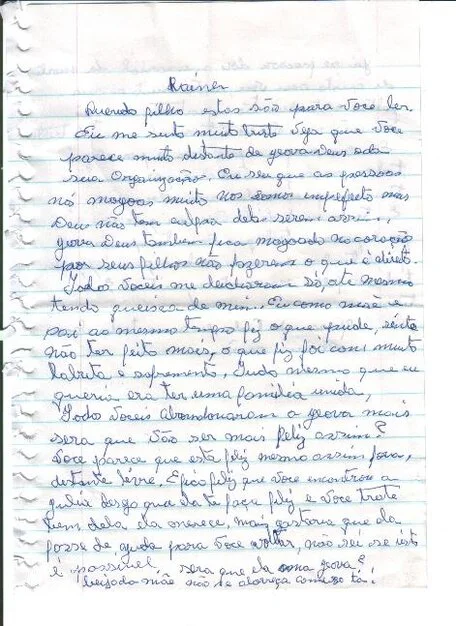 Rainer
Querido filho estas são para você ler.
Eu me sinto muito triste veja que você
parece muito distante de geova Deus e da
sua Organização. Eu sei que as pessoas
nó magoas muito nos somos imperfeito mas
Deus não tem culpa deles serem assim,
geova Deus tambem fica magoado no coração
por seus filhos não fazerem o que é direito.
Todos voceis me deicharam só, ate mesmo
tendo queicha de min. Eu como mãe e
pai ao mesmo tempo fiz o que pude, sinto
não ter feito mais, o que fiz foi com muito
e sofrimento, Tudo mesmo que eu
queria era ter uma familia unida,
Todo voceis abandonaram a geova mais
sera que vão ser mais feliz assim?
Voce parece que esta feliz mesmo assim fora,
distante livre. E fico feliz que voce incontrou a
julia desejo que ela te faça feliz e voce trate
bem dela ela merece, mais gostaria que ela
fosse de ajuda para voce voltar, não sei se isto
é possivel. sera que ela ama geova?
beijo da mãe não se aborreça comigo tá!